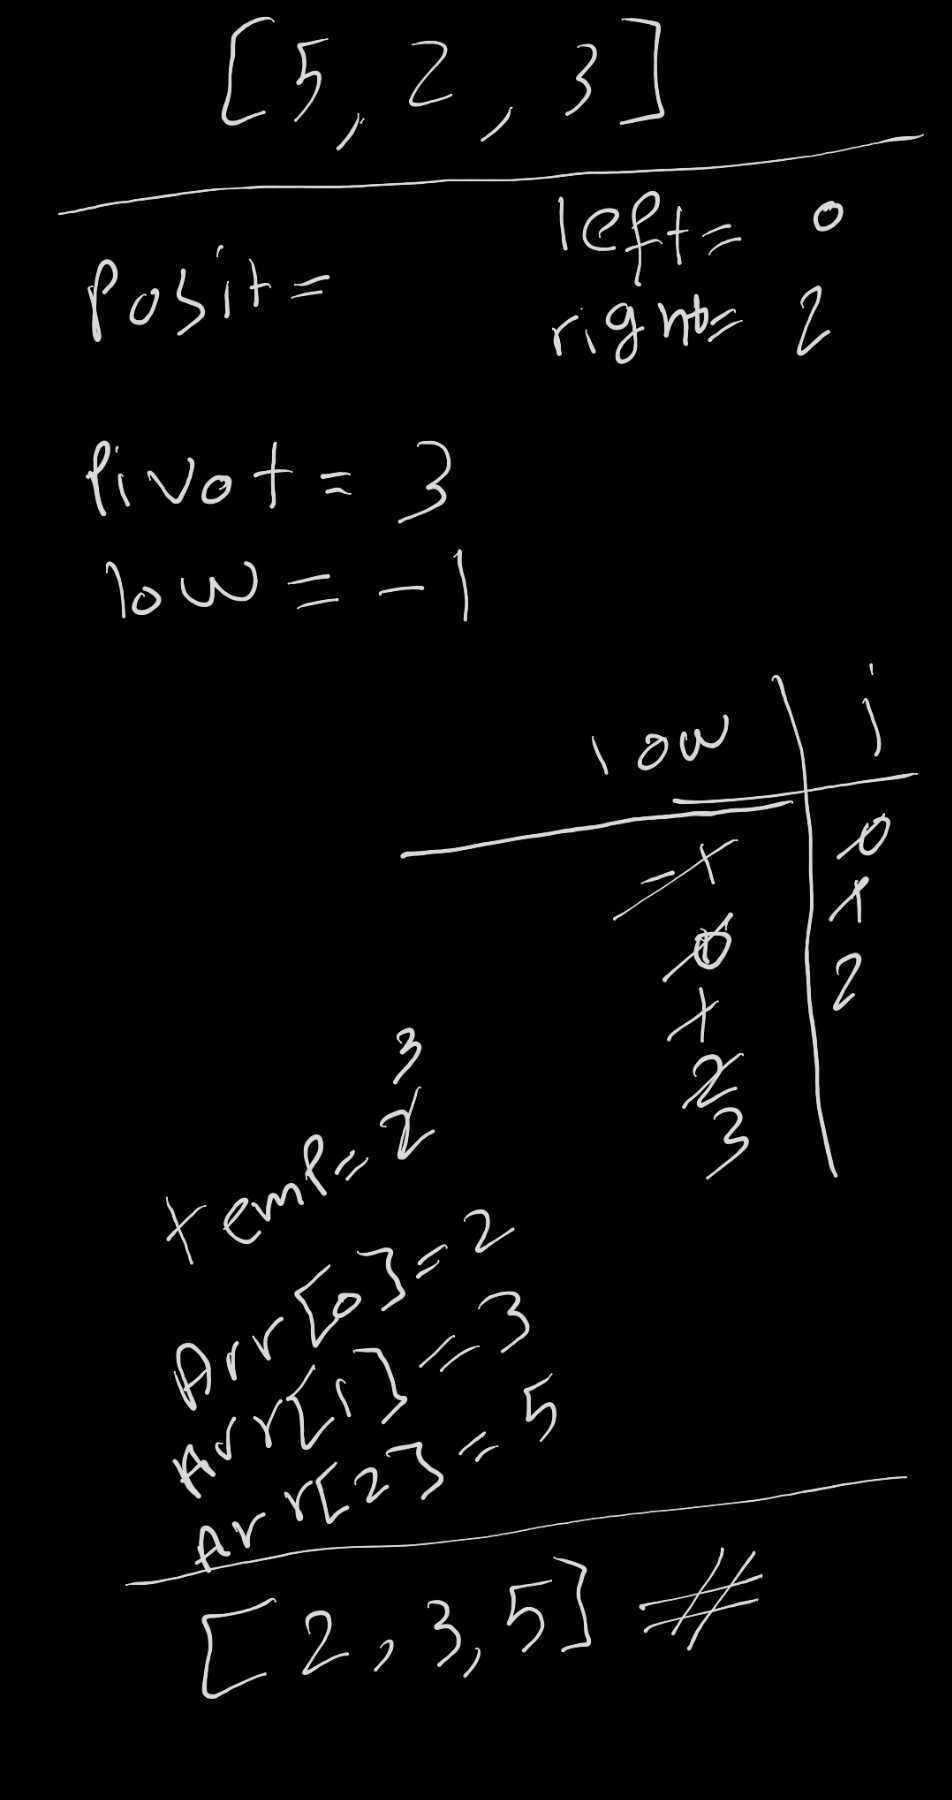 [5, 2, 3]
Posit=
left= 0
right= 2
Pivot= 3
low= -1
low j
-1 0
0 1
1 2
2
3
3
temp= 2
Arr[0]=2
Arr[1]=3
Arr[2]=5
[2,3,5] #